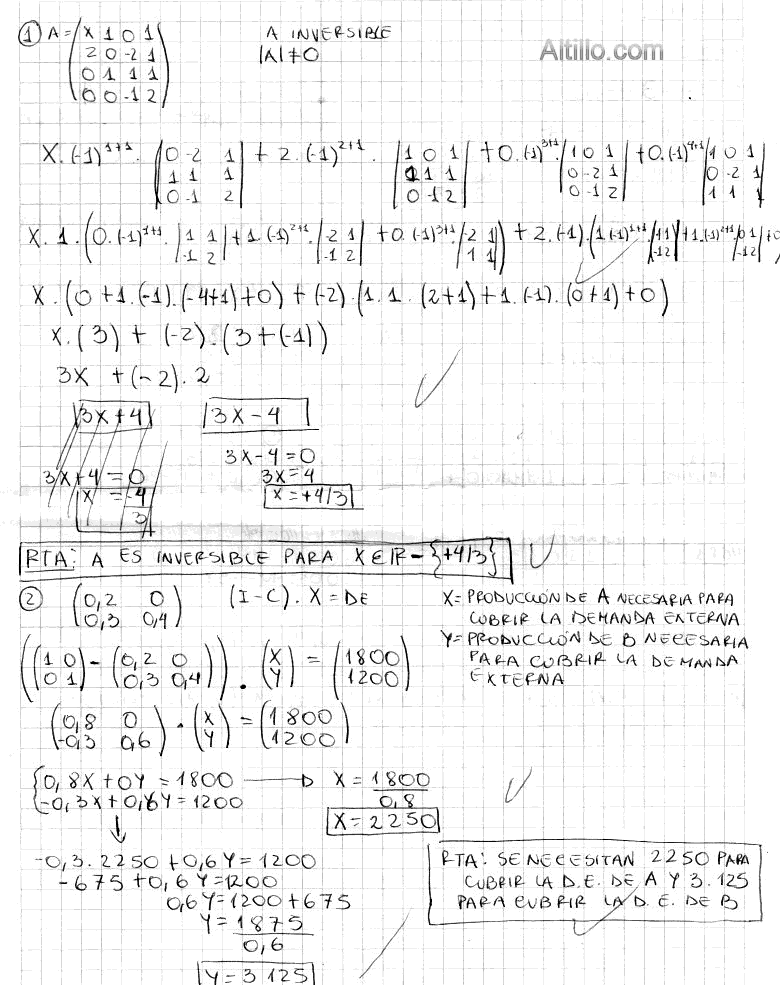 ① A = (X 1 0 1 A INVERSIBLE
2 0 -2 1 |A| ≠ 0
0 1 1 1
0 0 -1 2)
Altillo.com
X.(-1)^{1+1}. |0 -2 1; 1 1 1; 0 -1 2| + 2.(-1)^{2+1}. |1 0 1; 1 1 1; 0 -1 2| + 0.(-1)^{3+1}. |1 0 1; 0 -2 1; 0 -1 2| + 0.(-1)^{4+1} |1 0 1; 0 -2 1; 1 1 1|
X.1.(0.(-1)^{1+1}. |1 1; -1 2| + 1.(-1)^{2+1}. |-2 1; -1 2| + 0.(-1)^{3+1}. |-2 1; 1 1|) + 2.(-1).(1.(-1)^{1+1}. |1 1; -1 2| + 1.(-1)^{2+1}. |0 1; -1 2| + 0
X.(0+1.(-1).(-4+1)+0) + (-2).(1.1.(2+1)+1.(-1).(0+1)+0)
X.(3) + (-2).(3+(-1))
3X + (-2).2
3X+4 3X-4
3X-4=0
3X+4=0 3X=4
X = -4/3 X=+4/3
RTA: A ES INVERSIBLE PARA X∈IR-{+4/3}
② (0,2 0 (I-C).X=DE
0,3 0,4)
X=PRODUCCIÓN DE A NECESARIA PARA
CUBRIR LA DEMANDA EXTERNA
Y=PRODUCCIÓN DE B NECESARIA
PARA CUBRIR LA DEMANDA
EXTERNA
((1 0; 0 1) - (0,2 0; 0,3 0,4)) . (X; Y) = (1800; 1200)
(0,8 0; -0,3 0,6) . (X; Y) = (1800; 1200)
{0,8X+0Y=1800 → X=1800/0,8
-0,3X+0,6Y=1200 X=2250
-0,3.2250+0,6Y=1200
-675+0,6Y=1200
0,6Y=1200+675
Y=1875/0,6
Y=3125
RTA: SE NECESITAN 2250 PARA
CUBRIR LA D.E. DE A Y 3.125
PARA CUBRIR LA D.E. DE B